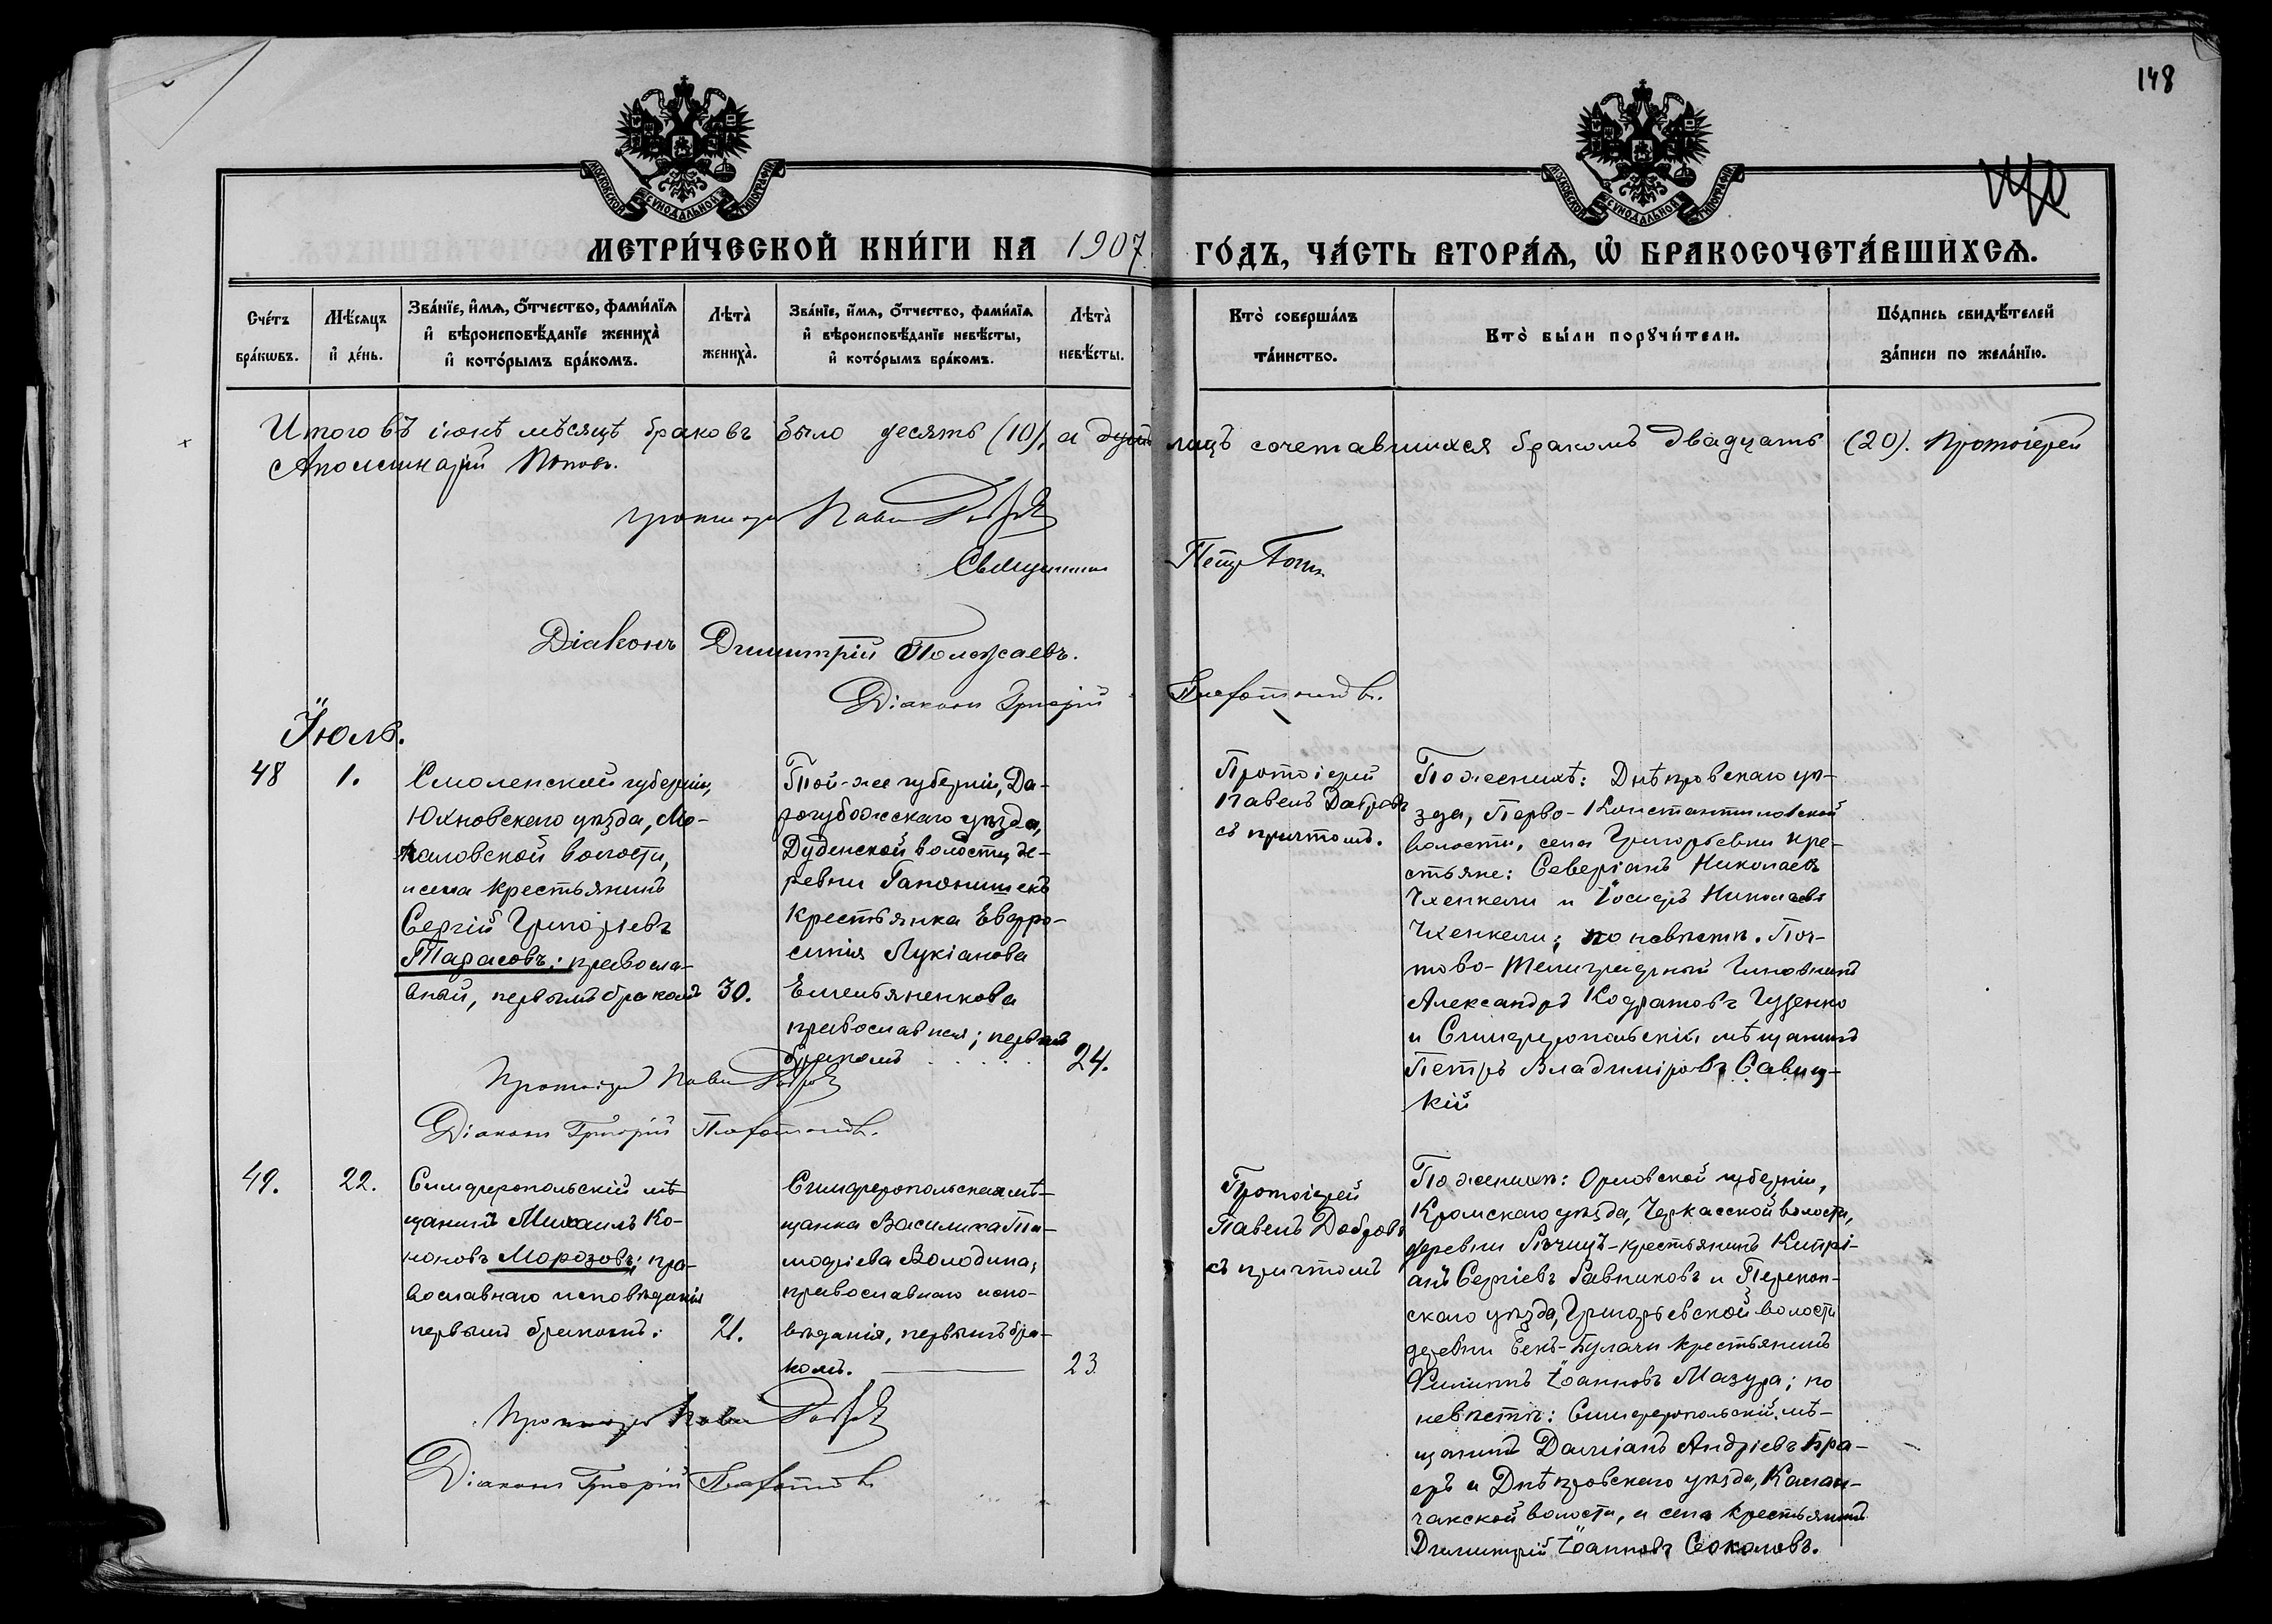 148
МОСКОВСКОЙ СѴНОДАЛЬНОЙ ТИПОГРАФІИ
МОСКОВСКОЙ СѴНОДАЛЬНОЙ ТИПОГРАФІИ
МЕТРИ́ЧЕСКОЙ КНИ́ГИ НА 1907 ГО́ДЪ, ЧА́СТЬ ВТОРА́Ѧ, Ѽ БРАКОСОЧЕТА́ВШИХСѦ.
Сче́тъ бра́кѡвъ.
Мѣ́сяцъ и҆ де́нь.
Зва́нїе, и҆́мѧ, ѻ҆́тчество, фами́лїѧ
и҆ вѣроисповѣ́данїе жениха̀
и҆ кото́рымъ бра́комъ.
Лѣта̀ жениха̀.
Зва́нїе, и҆́мѧ, ѻ҆́тчество, фами́лїѧ
и҆ вѣроисповѣ́данїе невѣ́сты,
и҆ кото́рымъ бра́комъ.
Лѣта̀ невѣ́сты.
Кто̀ соверша́лъ та́инство.
Кто̀ бы́ли порꙋчи́тели.
По́дпись свидѣ́телей за́писи по жела́нїю.
Итого въ іюнѣ мѣсяцѣ браковъ было десять (10), а лицъ сочетавшихся бракомъ двадцать (20). Протоіерей
Аполлинарій Поповъ.
Протоіерей Павелъ Добровъ
Священникъ Петръ
Діаконъ Димитрій Полежаевъ.
Діаконъ Григорій
Іюль.
48
1.
Смоленской губерніи,
Юхновскаго уѣзда, Мо-
каловской волости,
и села крестьянинъ
Сергій Григорьевъ
Тарасовъ; правосла-
вный, первымъ бракомъ
30.
Той-же губерніи, До-
рогубожскаго уѣзда,
Дубенской волости, де-
ревни Гапонишекъ
крестьянка Евфро-
синія Лукіанова
Емельяненкова
православная; первымъ
бракомъ
24.
Протоіерей
Павелъ Добровъ
съ причтомъ.
По женихѣ: Днѣпровскаго уѣ-
зда, Перво-Константиновской
волости, села Григорьевки кре-
стьяне: Северіанъ Николаевъ
Чхенкели и Іосифъ Николаевъ
Чхенкели; по невѣстѣ. Поч-
тово-Телеграфный Чиновникъ
Александръ Кодратовъ Гуденко
и Симферопольскій мѣщанинъ
Петръ Владиміровъ Савиц-
кій
Протоіерей Павелъ Добровъ
Діаконъ Григорій
49.
22.
Симферопольскій мѣ-
щанинъ Михаилъ Ко-
ноновъ Морозовъ; пра-
вославнаго исповѣданія
первымъ бракомъ.
21.
Симферопольская мѣ-
щанка Василиха Ти-
мофіева Володина;
православнаго испо-
вѣданія, первымъ бра-
комъ.
23
Протоіерей
Павелъ Добровъ
съ причтомъ
По женихѣ: Орловской губерніи,
Кромскаго уѣзда, Черкасской волости,
деревни Рѣчицъ-крестьянинъ Кипрі-
анъ Сергіевъ Равниковъ и Перекоп-
скаго уѣзда, Григорьевской волости
деревни Бекъ-Булачи крестьянинъ
Филиппъ Іоанновъ Мазура; по
невѣстѣ: Симферопольскій мѣ-
щанинъ Даміанъ Андріевъ Бра-
еръ и Днѣпровскаго уѣзда, Калан-
чакской волости, и села крестьянинъ
Димитрій Іоанновъ Соколовъ.
Протоіерей Павелъ Добровъ
Діаконъ Григорій